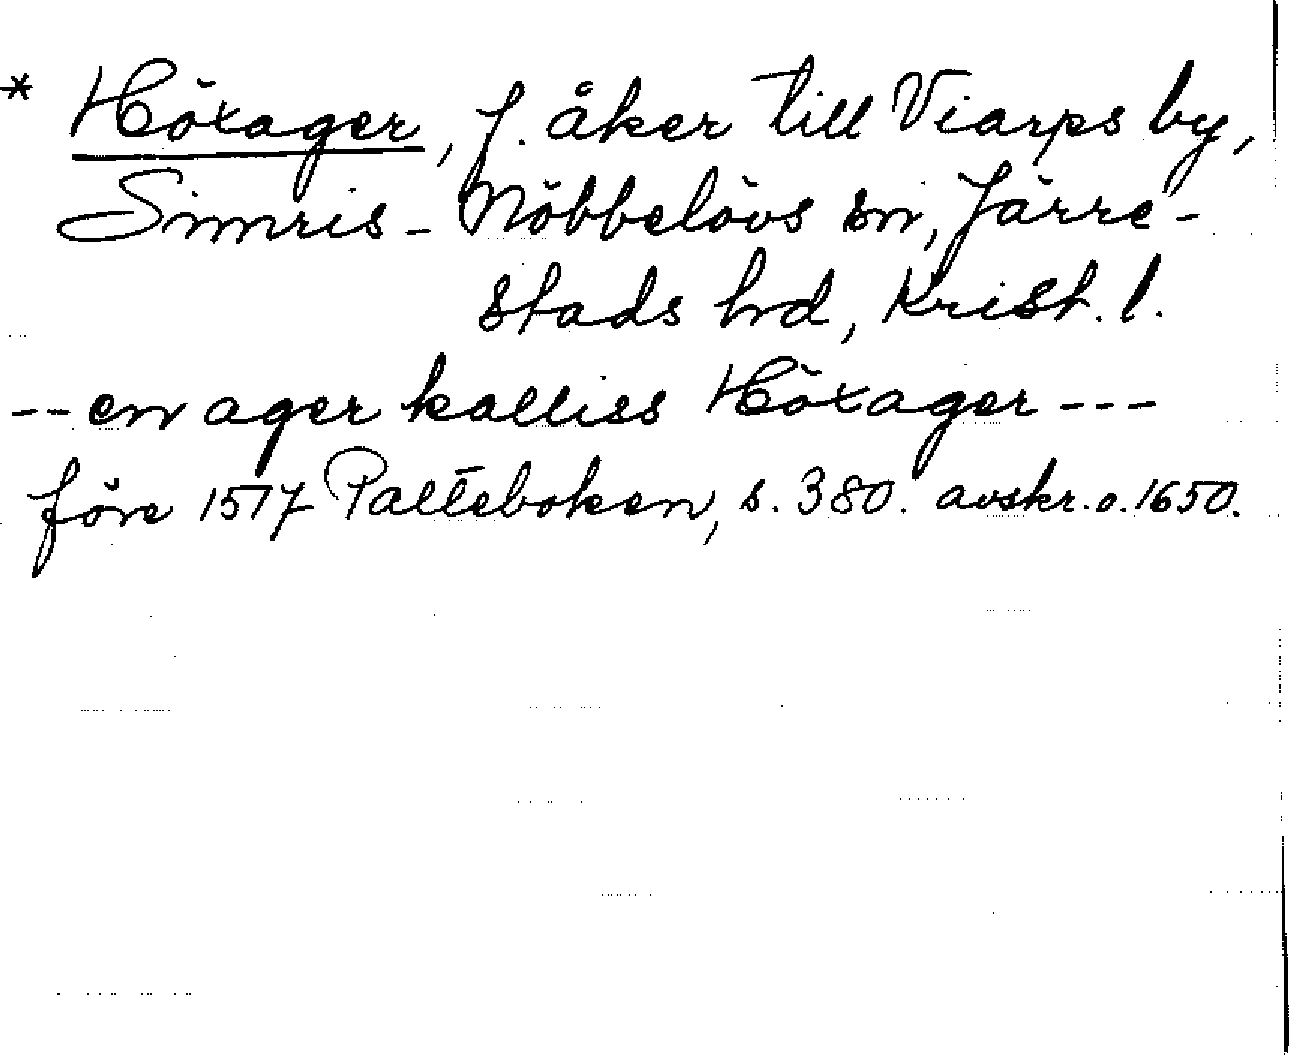 * Höxager, f. åker till Viarps by,
Simris - Nöbbelövs sn, Järre-
stads hrd, Krist. l.
-- en ager kalliss Höxager ---
före 1517 Palteboken, s. 380. avskr. o. 1650.